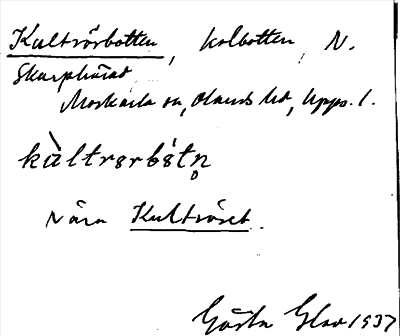 Kultrörbotten, kolbotten, N.
Skarphårad
Morkarla sn, Olands hd, Upps. l.
kùltrɘrbótn̥
Nära Kultröset.
Gösta Glad 1937